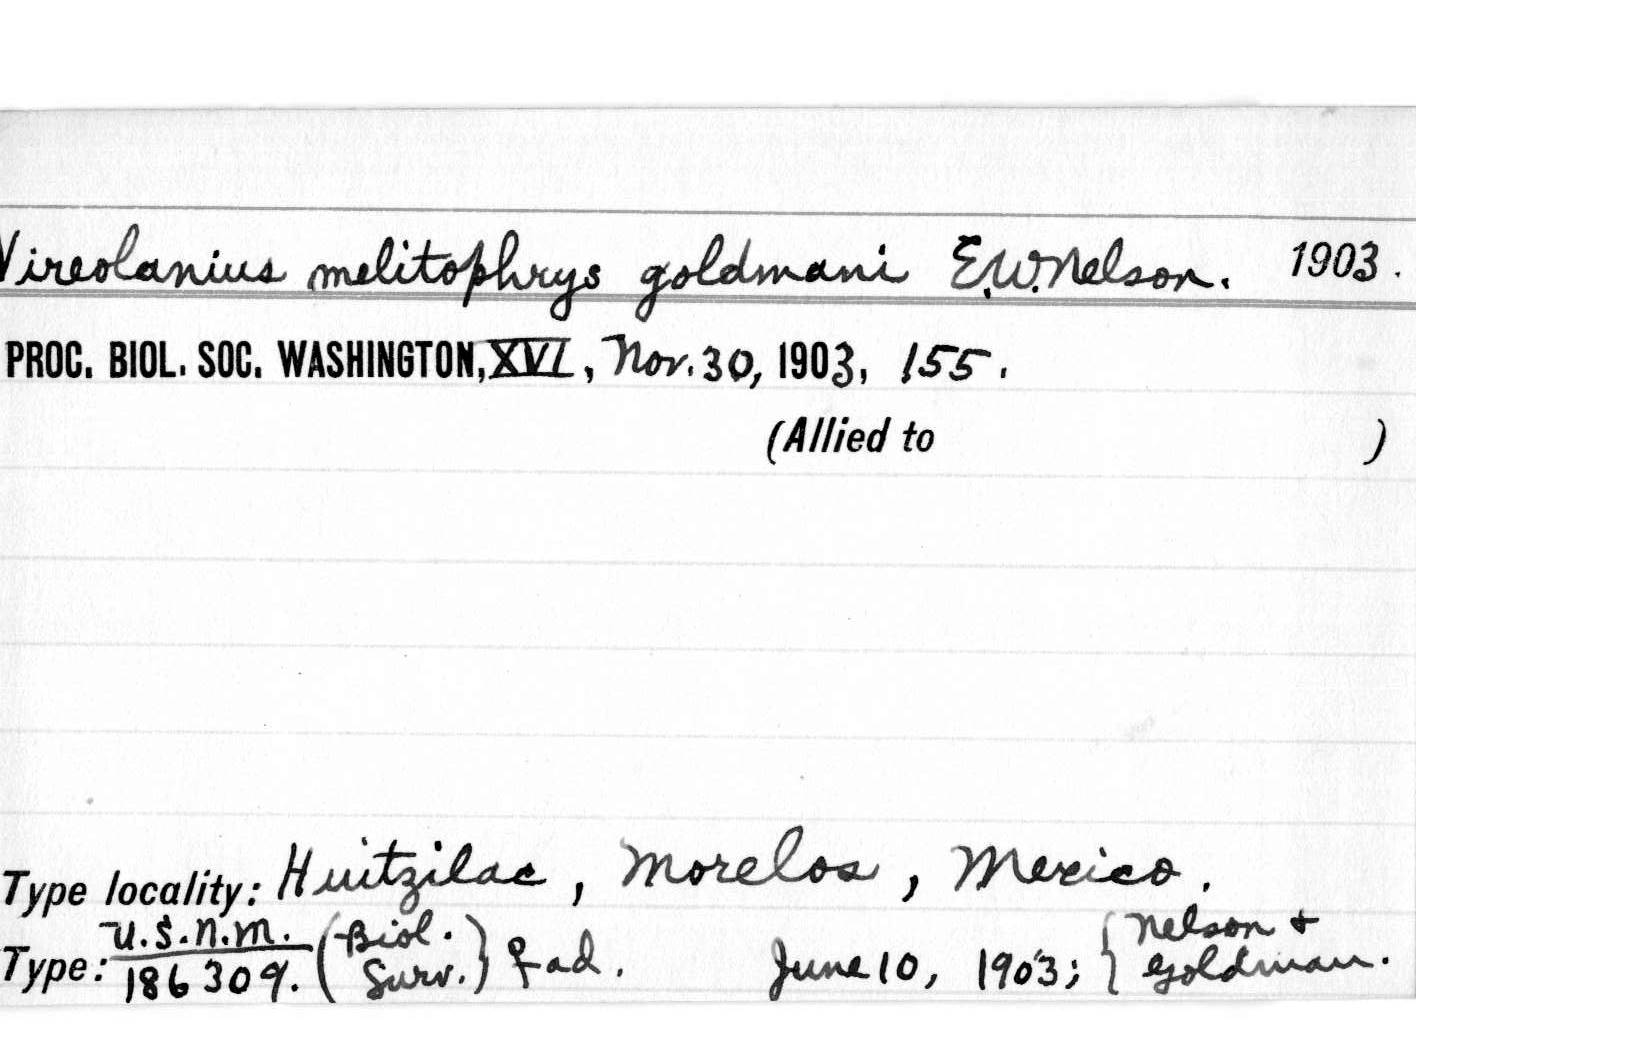 Vireolanius melitophrys goldmani E.W. Nelson. 1903.
PROC. BIOL. SOC. WASHINGTON, XVI, Nov. 30, 1903, 155.
(Allied to )
Type locality: Huitzilac, Morelos, Mexico.
Type: U.S.N.M. 186309. (Biol. Surv.) ♀ ad. June 10, 1903; { Nelson + Goldman.